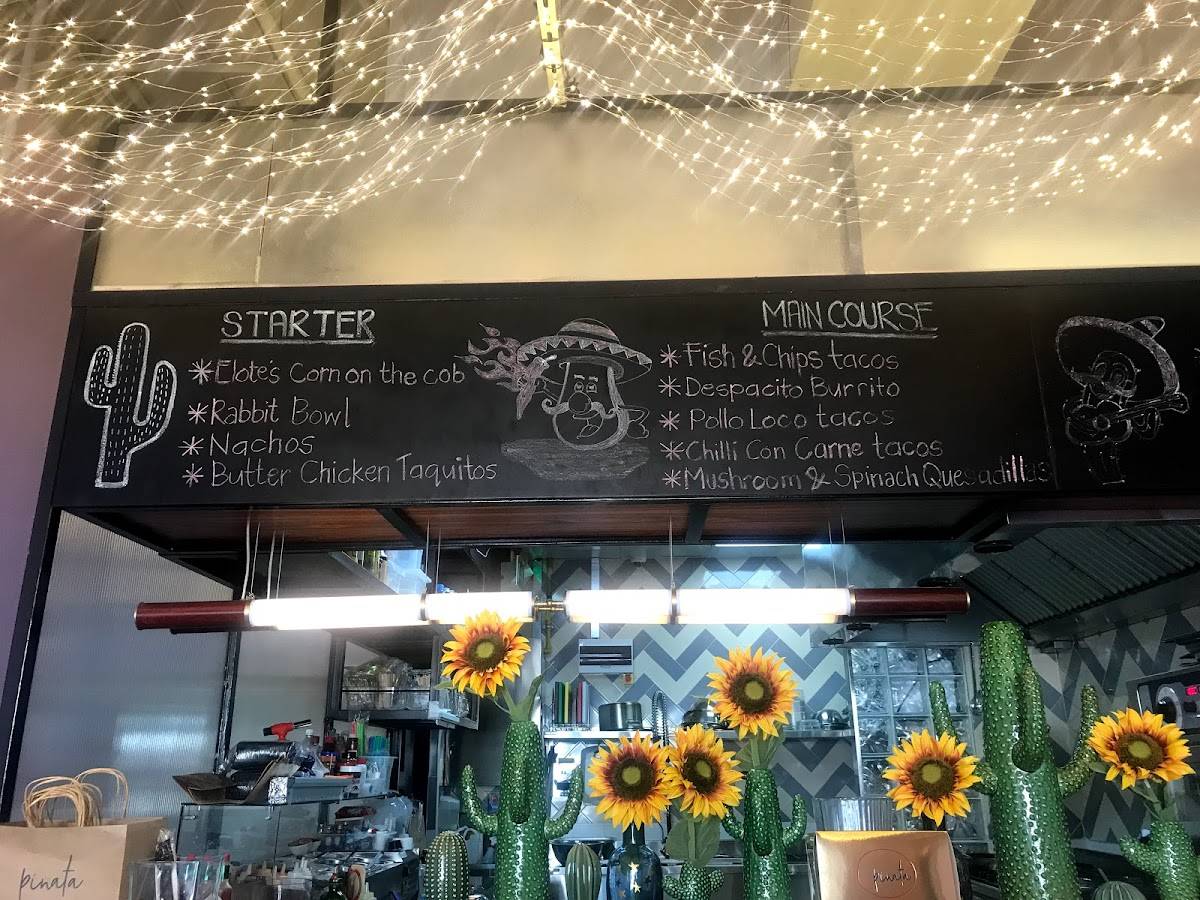 STARTER
*Elote's Corn on the cob
*Rabbit Bowl
*Nachos
*Butter Chicken Taquitos
MAIN COURSE
*Fish & Chips tacos
*Despacito Burrito
*Pollo Loco tacos
*Chilli Con Carne tacos
*Mushroom & Spinach Quesadillas
pinata
pinata